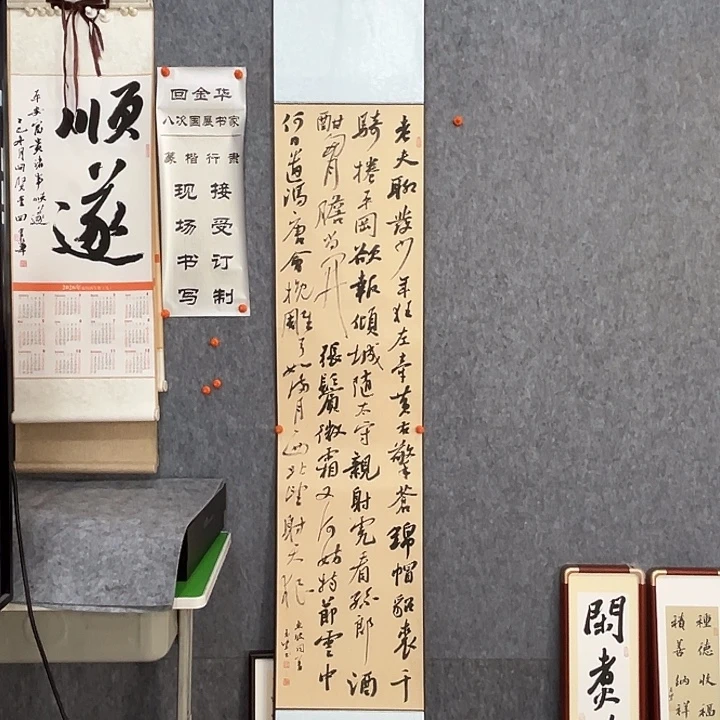 順遂
平安富貴諸事順遂
2026年
回金华
八次国展书家
篆楷行隶
接受订制
现场书写
老夫聊發少年狂左牽黃右擎蒼錦帽貂裘千
騎捲平岡欲報傾城隨太守親射虎看孫郎酒
酣胸膽尚開張鬢微霜又何妨持節雲中
何日遣馮唐會挽雕弓如滿月西北望射天狼
閑煮
種德收福
積善納祥